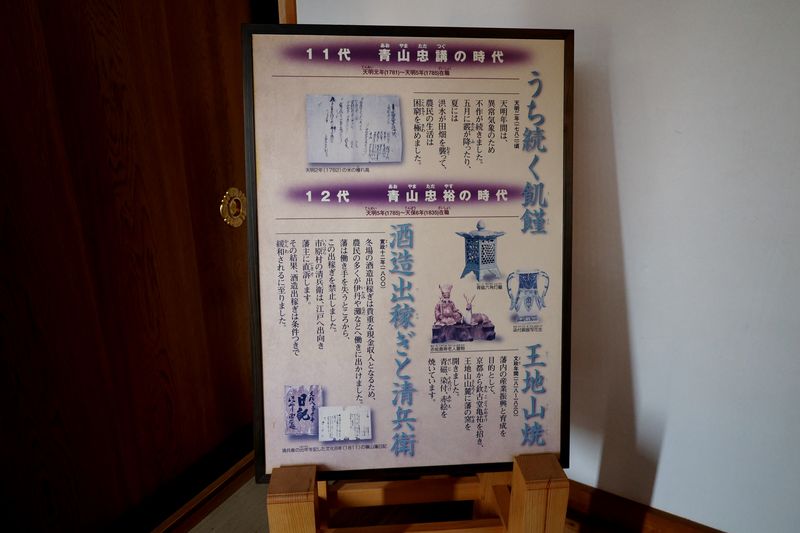 11代 青山忠講の時代
あお やま ただ つぐ
天明元年(1781)〜天明5年(1785)在職
うち続く飢饉
天明二年(一七八二)頃
天明年間は、
異常気象のため
不作が続きました。
五月に霰が降ったり、
夏には
洪水が田畑を襲って、
農民の生活は
困窮を極めました。
天明2年(1782)の米の穫れ高
12代 青山忠裕の時代
あお やま ただ やす
天明5年(1785)〜天保6年(1835)在職
酒造出稼ぎと清兵衛
寛政十二年(一八〇〇)
冬場の酒造出稼ぎは貴重な現金収入となるため、
農民の多くが伊丹や灘などへ働きに出かけました。
藩は働き手を失うところから、
この出稼ぎを禁止しました。
市原村の清兵衛は、江戸へ出向き
藩主に直訴します。
その結果、酒造出稼ぎは条件つきで
緩和されるに至りました。
日記
清兵衛の出牢を記した文化8年(1811)の篠山藩日記
青磁六角灯籠
王地山焼
文政年間(一八一八〜一八三〇)
藩内の産業振興と育成を
目的として、
京都から欽古堂亀祐を招き、
王地山山麓に藩の窯を
開きました。
青磁、染付、赤絵を
焼いています。